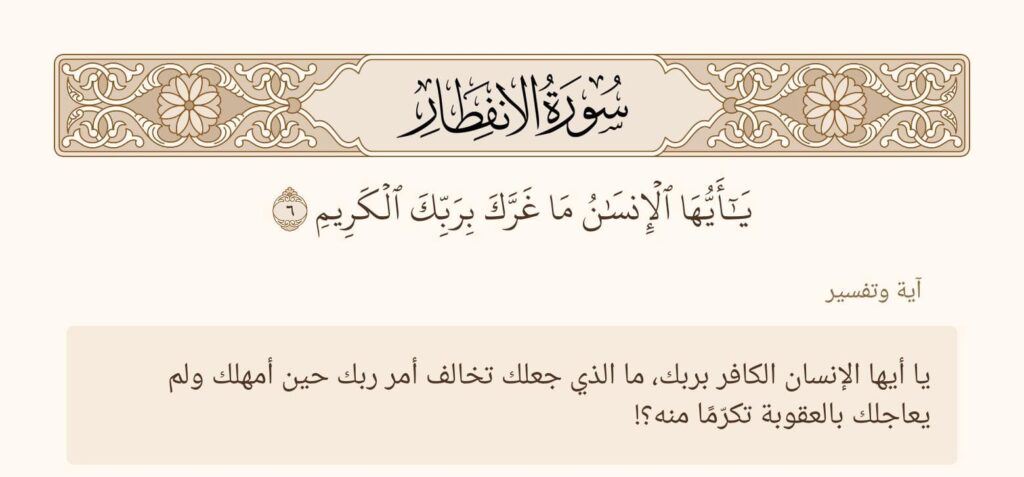 سُورَةُ الِانفِطَارِ
يَـٰٓأَيُّهَا ٱلۡإِنسَـٰنُ مَا غَرَّكَ بِرَبِّكَ ٱلۡكَرِيمِ ٦
آية وتفسير
يا أيها الإنسان الكافر بربك، ما الذي جعلك تخالف أمر ربك حين أمهلك ولم
يعاجلك بالعقوبة تكرّمًا منه؟!